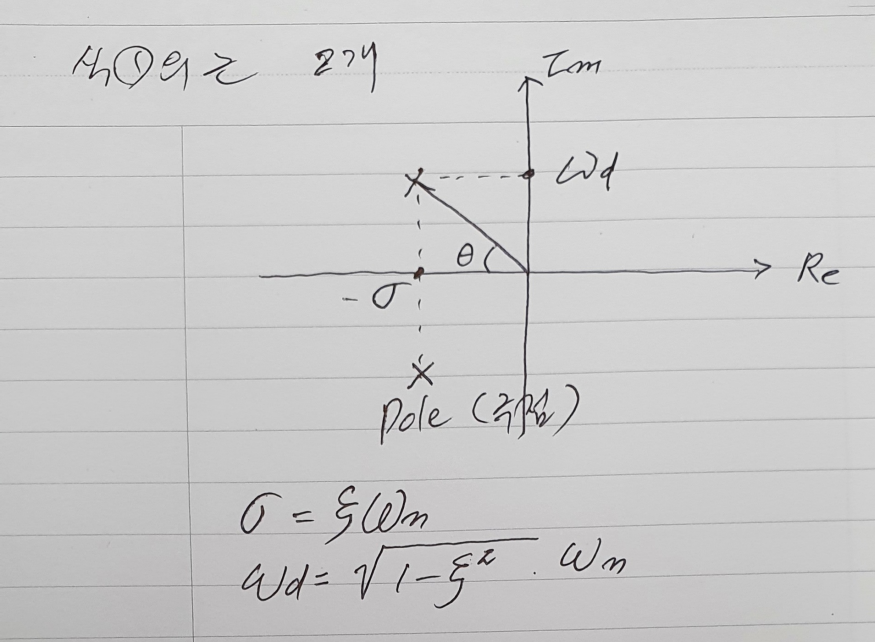 식①의 근 2개
Im
ωd
θ
Re
-σ
Pole (극점)
σ = ξωn
ωd = √(1-ξ²) . ωn